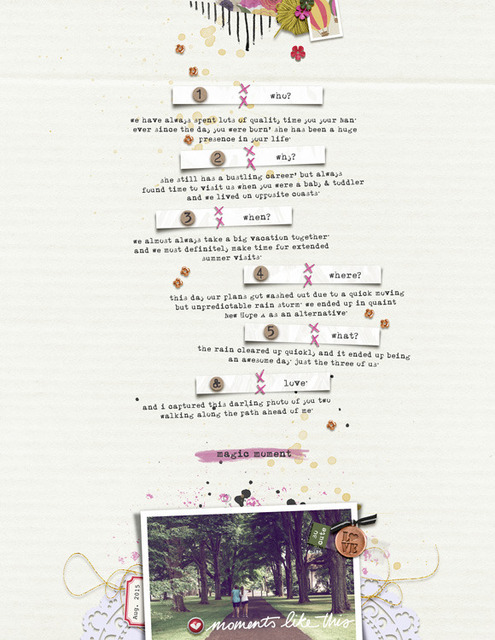 1 who?
we have always spent lots of quality time you your nan
ever since the day you were born' she has been a huge
presence in your life'
2 why?
she still has a bustling career' but always
found time to visit us when you were a baby & toddler
and we lived on opposite coasts'
3 when?
we almost always take a big vacation together'
and we most definitely make time for extended
summer visits'
4 where?
this day our plans got washed out due to a quick moving
but unpredictable rain storm' we ended up in quaint
new Hope as an alternative'
5 what?
the rain cleared up quickly and it ended up being
an awesome day' just the three of us'
& love'
and i captured this darling photo of you two
walking along the path ahead of me'
magic moment
so cute
LOVE
Aug. 2015
moments like this